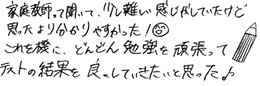 家庭教師って聞いて、少し難しい感じがしていたけど
思ったより分かりやすかった!
これを機に、どんどん勉強を頑張って
テストの結果を良くしていきたいと思った♪